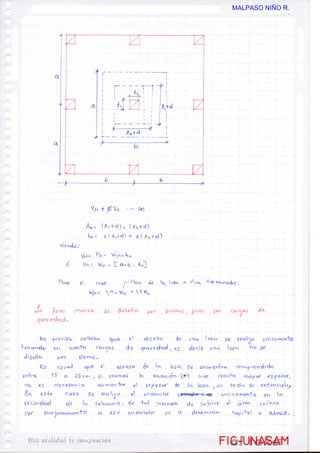 MALPASO NIÑO R.
a
a
a
t₂
t₁
t₁+d
t₂+d
b
b
b
Vu ≤ ϕVc
A₀ = (t₁+d) × (t₂+d)
b₀ = 2(t₁+d) + 2(t₂+d)
donde:
Vu = Pu - Wu × A₀
ó Vu = Wu × [a × b - A₀]
Una losa maciza se diseña por sismo, sino por cargas de
gravedad.
Es preciso señalar que el diseño de una losa se realiza únicamente
teniendo en cuenta cargas de gravedad, es decir una losa no se
diseña por sismo.
Es usual que el espesor de la losa se encuentre comprendido
entre 15 a 20 cm, si usamos la ecuación (*) nos resulta mayor espesor,
no es necesario aumentar el espesor de la losa, en toda su extensión,
En este caso se realiza el ensanche únicamente en la
vecindad de la columna, de tal manera de cubrir el área crítica
por punzonamiento a ese ensanche se le denomina capitel o ábaco.
Haz realidad tu imaginación
FIC-UNASAM